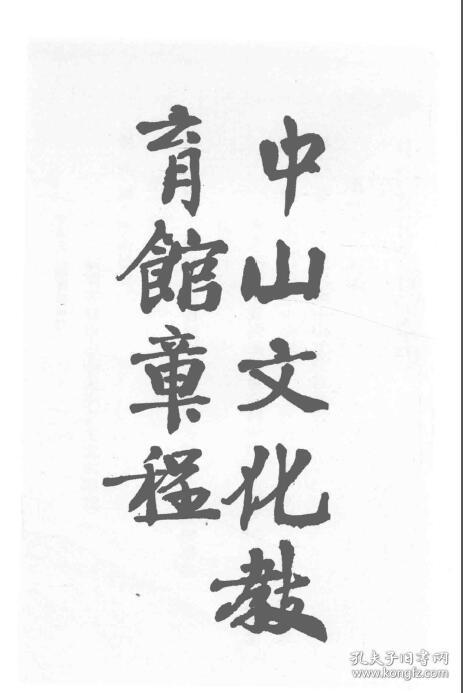 中山文化教
育館章程
孔夫子旧书网
www.kongfz.com